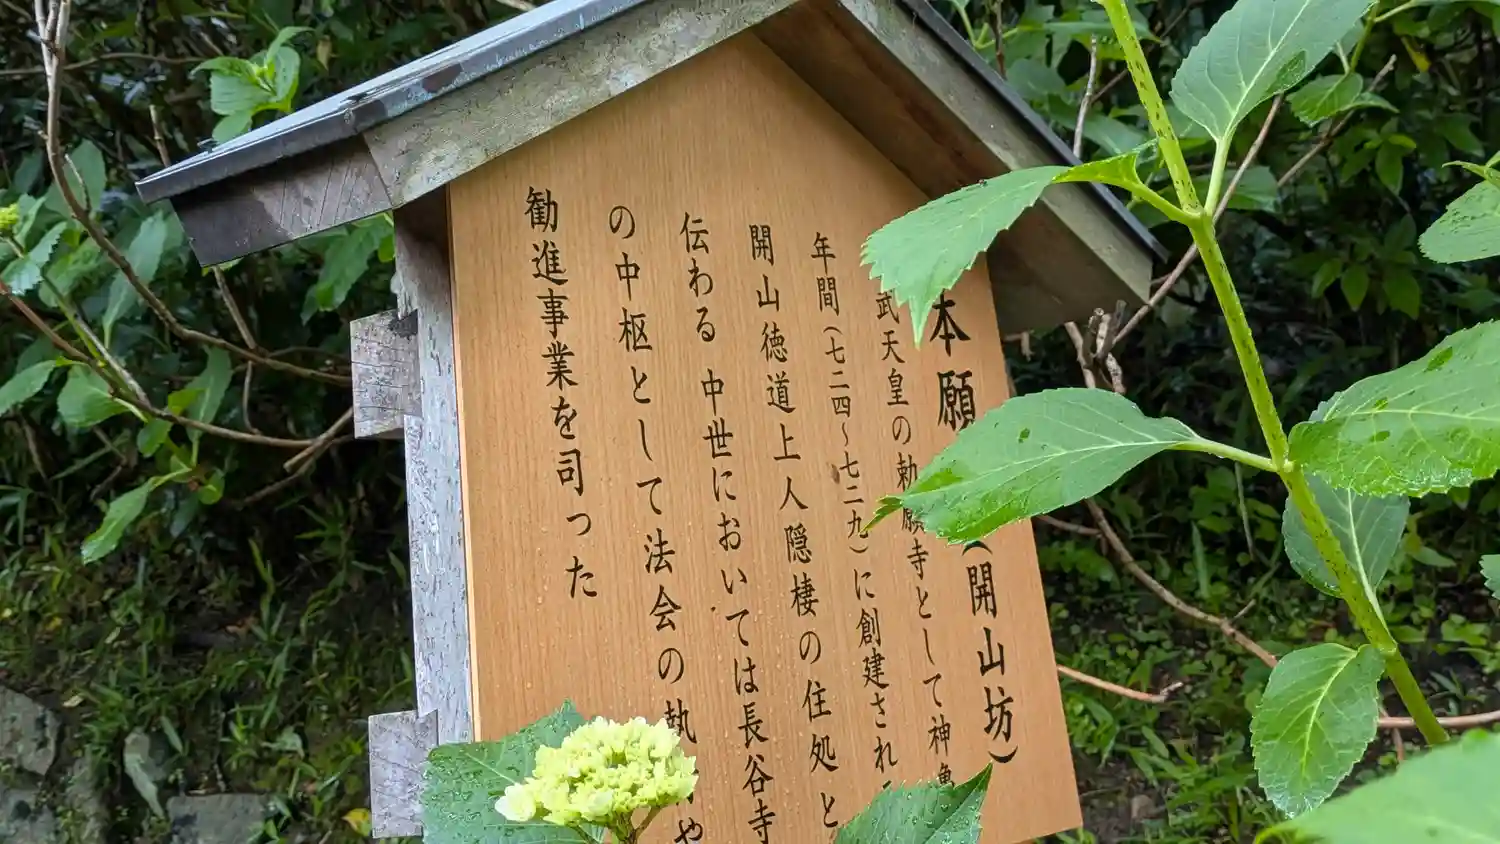 本願 (開山坊)
武天皇の勅願寺として神亀
年間(七二四～七二九)に創建され
開山徳道上人隠棲の住処と
伝わる 中世においては長谷寺
の中枢として法会の執 や
勧進事業を司った